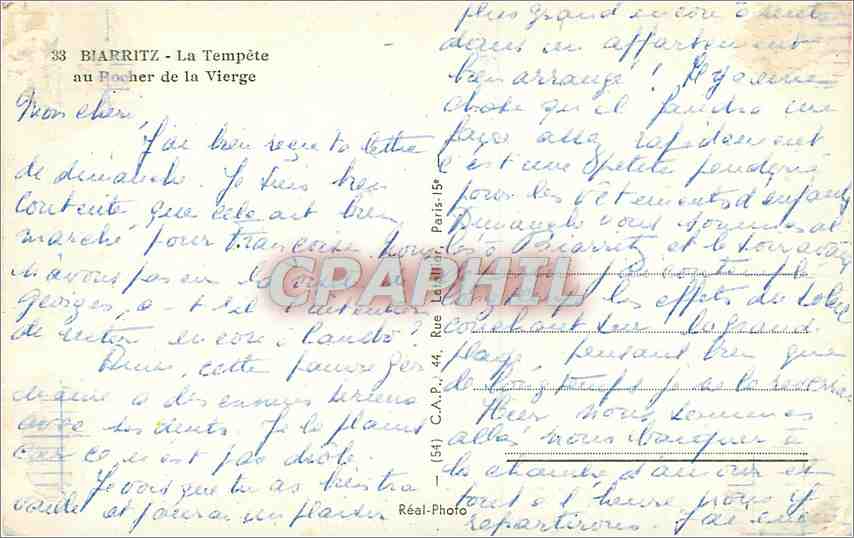 33 BIARRITZ - La Tempête
au Rocher de la Vierge
Mon cher,
J'ai bien reçu ta lettre
de dimanche. Je suis bien
contente que cela ait bien
marché pour Françoise. Nous
n'avons pas eu la
Georges, a-t-il l'intention
de rester encore à Cambo ?
cette pauvre Ger
maine a des ennuis
avec ses dents. Je la plains
car ce n'est pas drôle.
Je vois que tu as bien tra
vaillé et j'aurai un plaisir
plus grand encore à
dans un appartement
bien arrangé ! Il y a une
chose qu'il faudra
assez rapidement
c'est une petite penderie
pour les vêtements d'enfants
Dimanche nous sommes al
lés à Biarritz et le soir
les effets du soleil
couchant sur la grand
plage, pensant bien que
de longtemps je ne la reverrai
Hier nous sommes
allés nous à
la chambre d'amour et
tout à l'heure nous y
repartirons. J'ai
(54) C.A.P., 44, Rue Letellier, Paris-15e
Réal-Photo
CPAPHIL